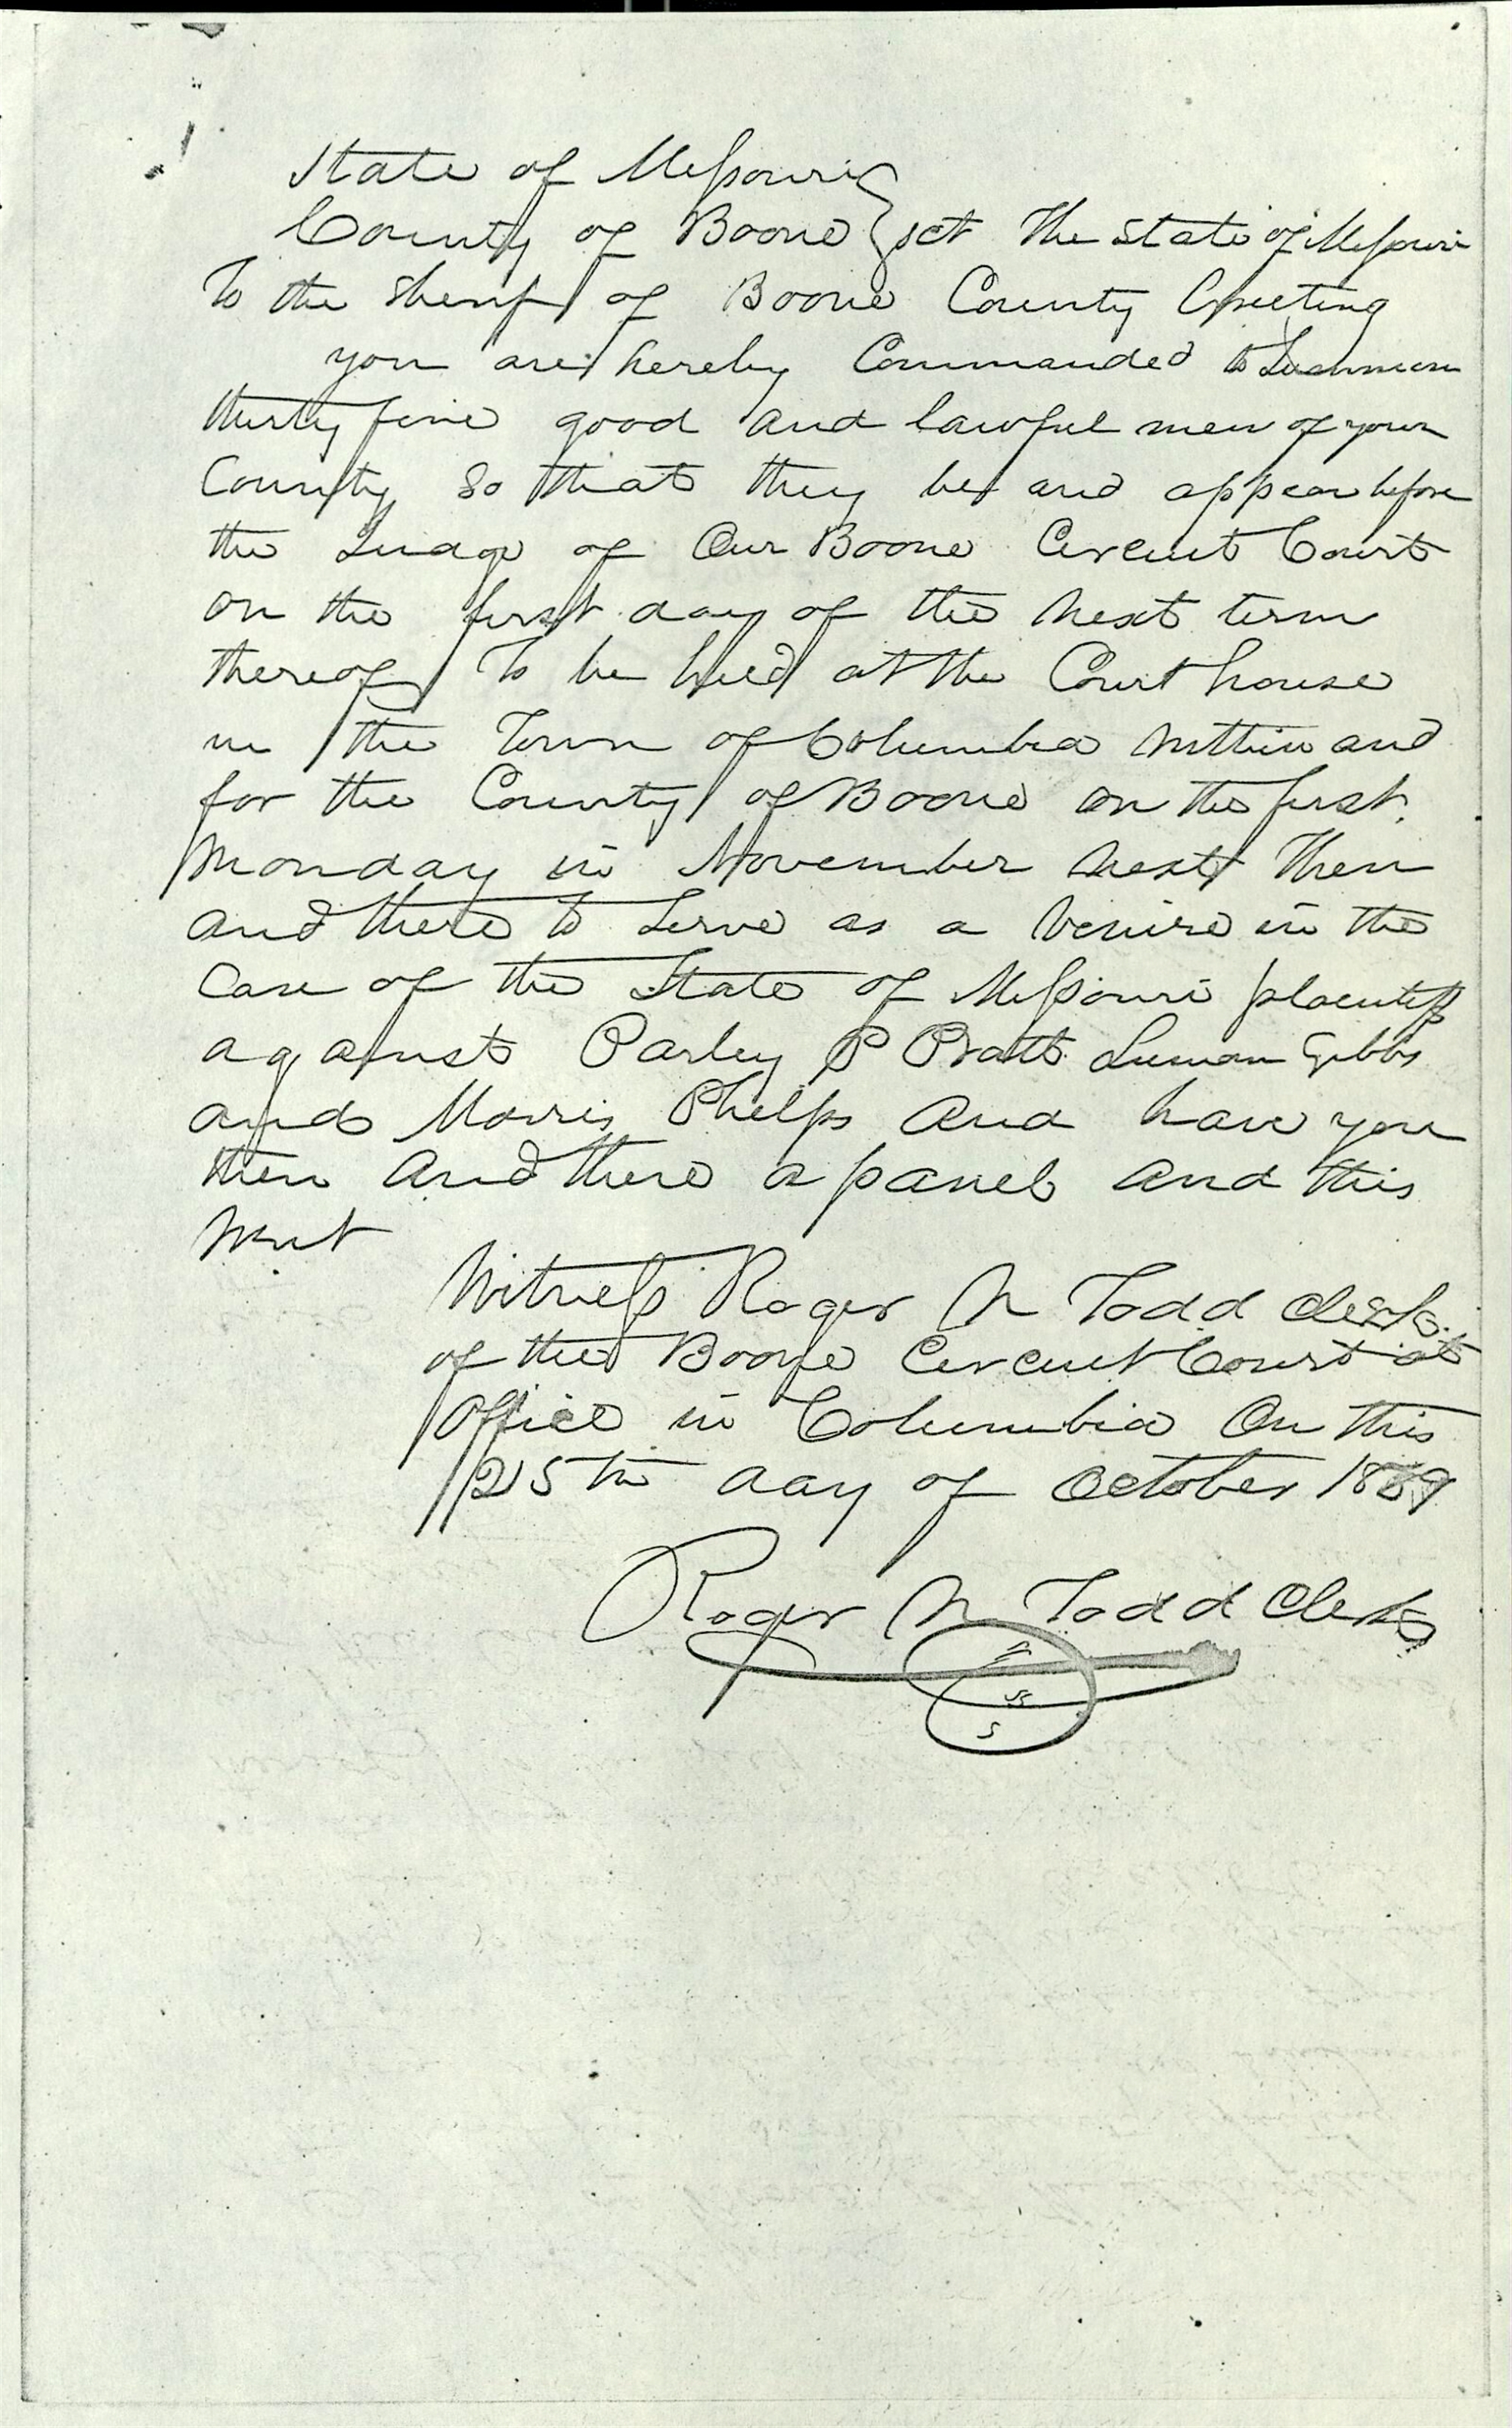 State of Missouri }
County of Boone } sct The State of Missouri
To the Sheriff of Boone County Greeting
you are hereby Commanded to Summon
thirty five good and lawful men of your
County so that they be and appear before
the Judge of Our Boone Circuit Court
on the first day of the next term
thereof To be held at the Court house
in the Town of Columbia within and
for the County of Boone on the first
Monday in November next Then
and there to Serve as a Venire in the
Case of the State of Missouri plaintiff
against Parley P Pratt Luman Gibbs
and Morris Phelps And have you
then And there a panel and this
Writ
Witness Roger N Todd clerk
of the Boone Circuit Court at
Office in Columbia On this
25th day of October 1839
Roger N Todd Clerk